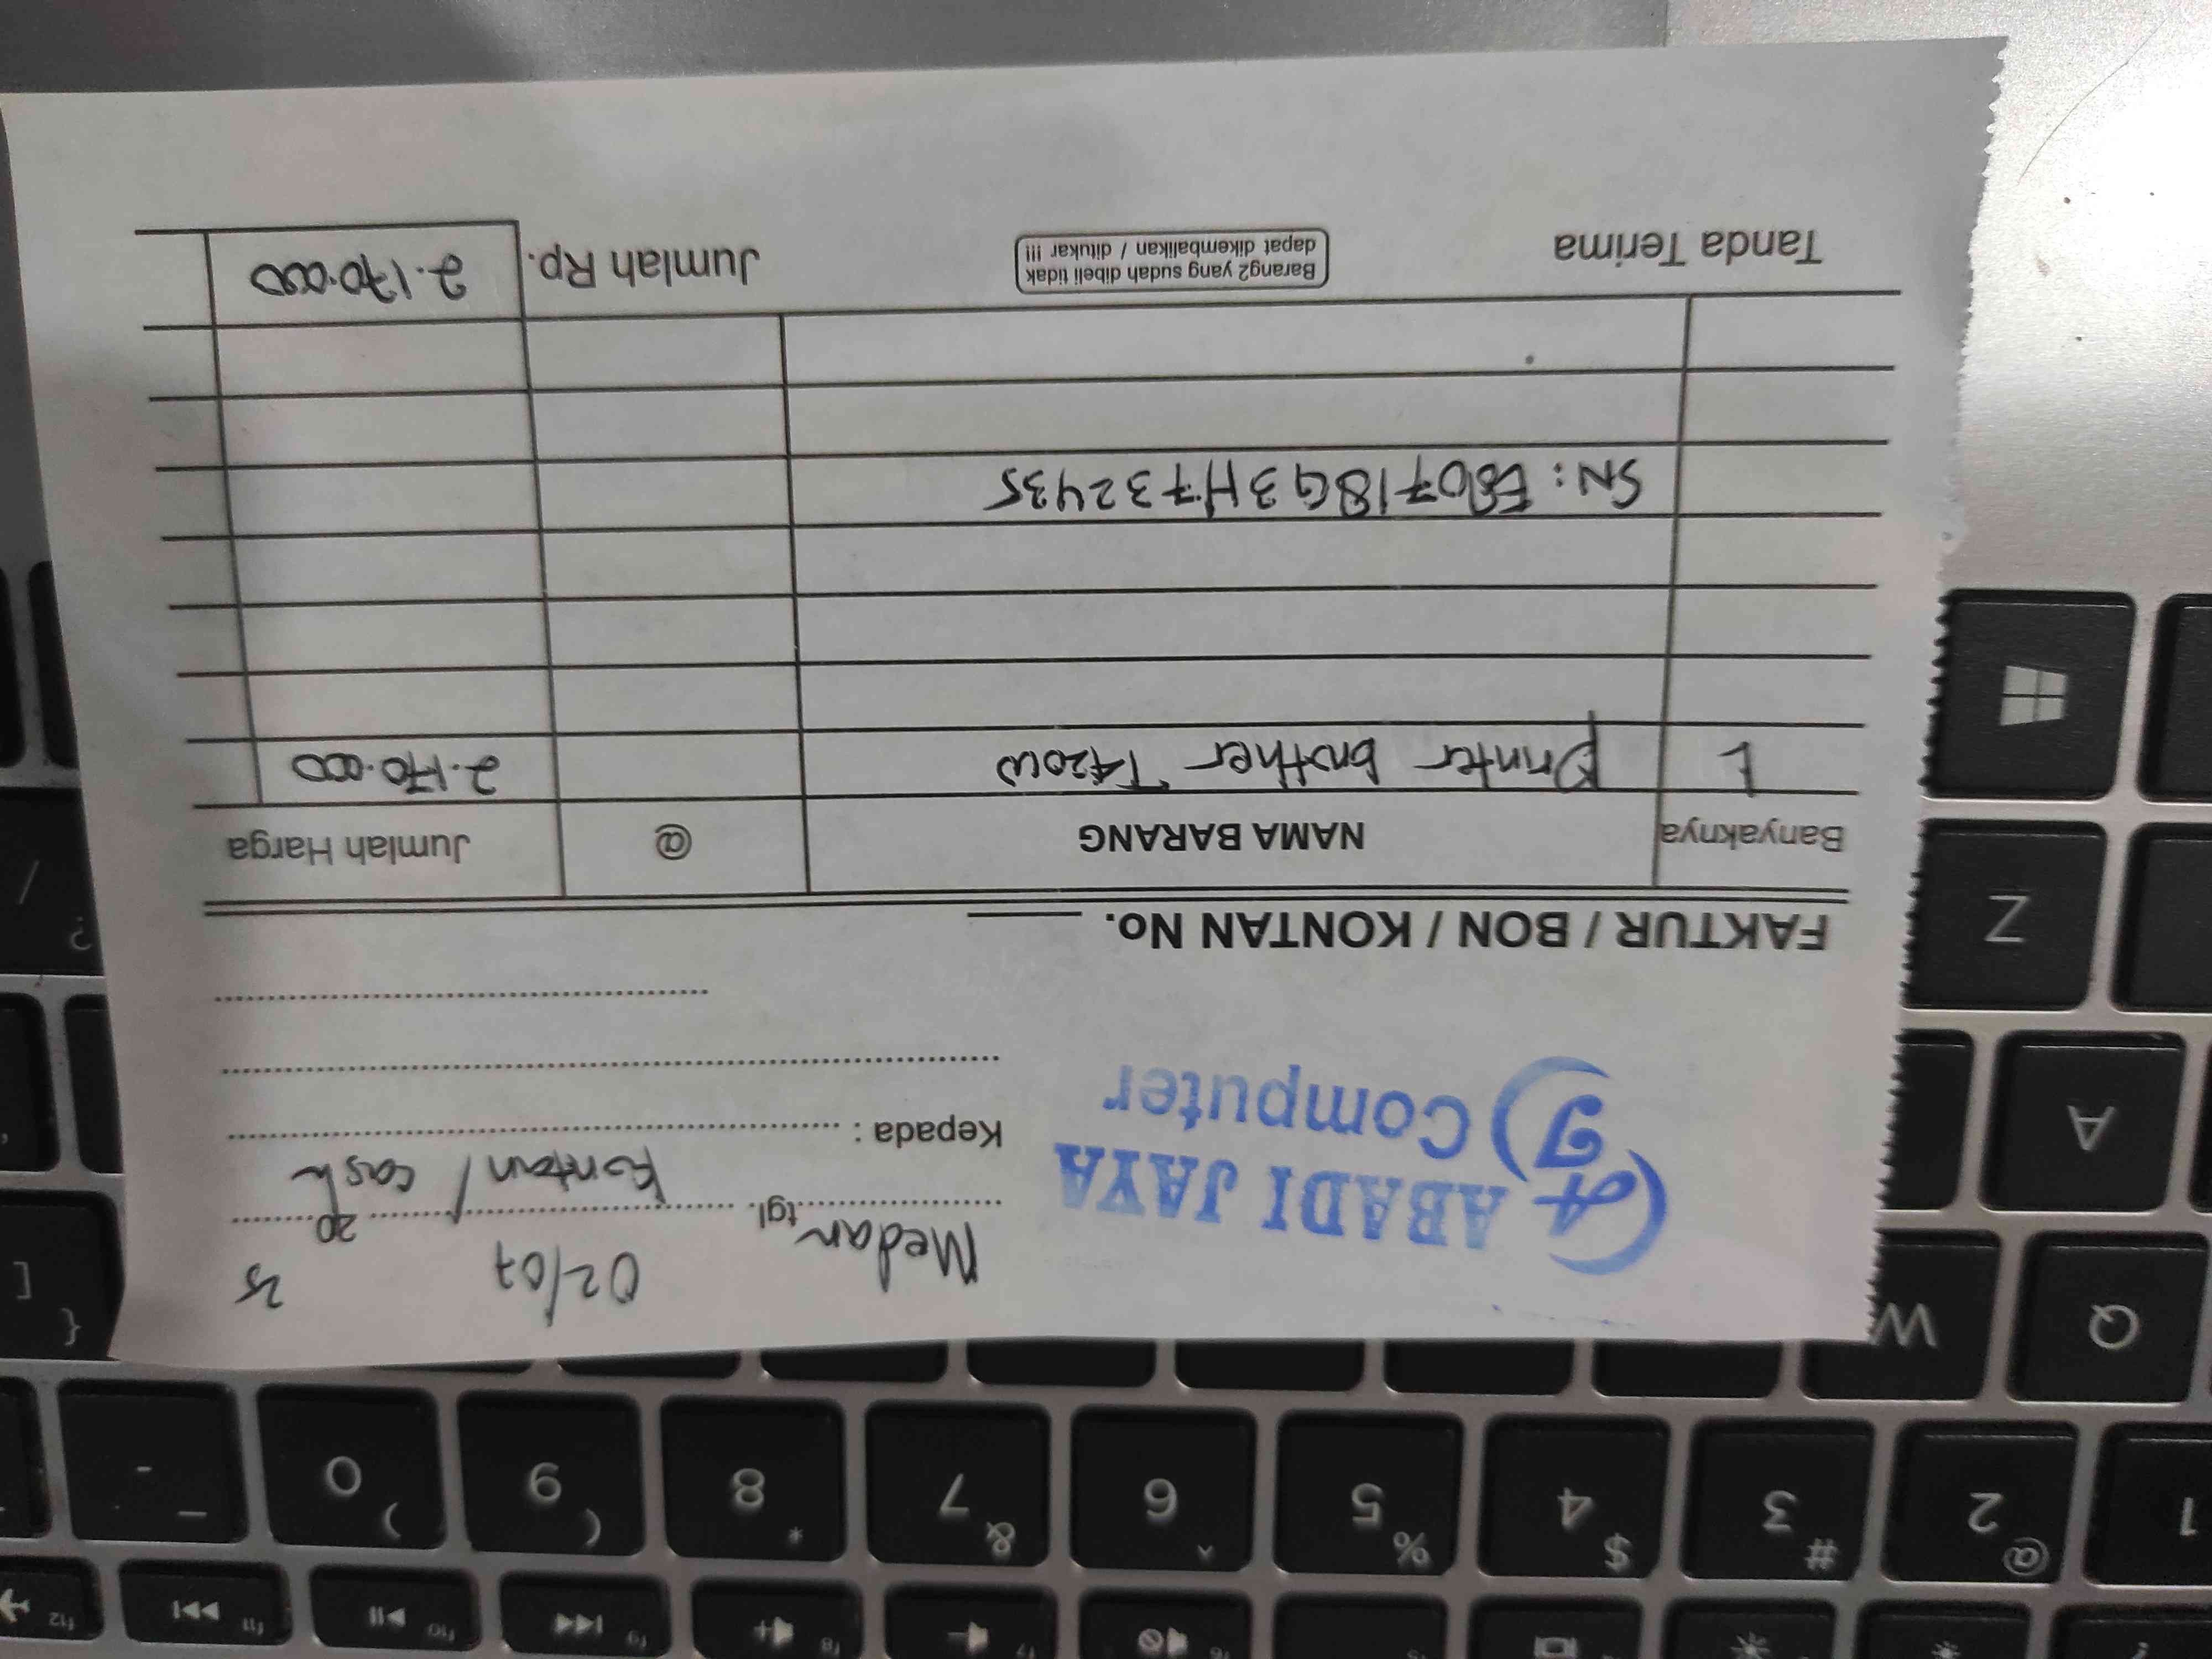 ABADI JAYA
AJ Computer
Medan tgl. 02/07 20 25
Kontan / cash
Kepada :
FAKTUR / BON / KONTAN No.
Banyaknya NAMA BARANG @ Jumlah Harga
1 Printer brother T420W 2.170.000
SN: E80718G3H732435
Tanda Terima
Barang2 yang sudah dibeli tidak
dapat dikembalikan / ditukar !!!
Jumlah Rp. 2.170.000
Z
A
Q W
1 2 @ 3 # 4 $ 5 % 6 ^ 7 & 8 * 9 ( 0 ) - _
[ {
/ ?
f8 f9 f10 f11 f12